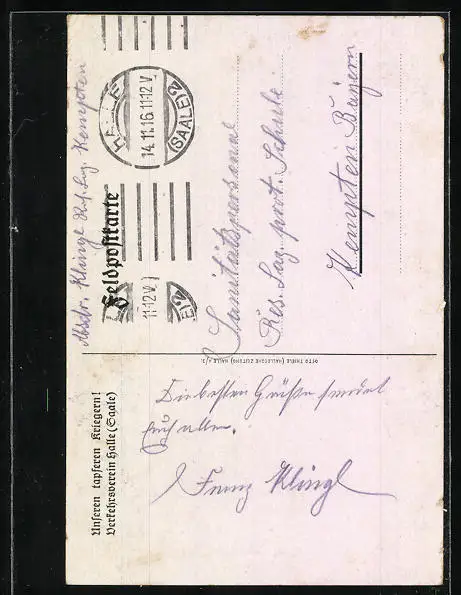 Unseren tapferen Kriegern!
Verkehrsverein Halle (Saale)
Feldpostkarte
Absdr. Klingl Res. Laz. Kempten
HALLE
14.11.16.11-12V.
(SAALE)2
11-12V.
E)2
Sanitätspersonal
Res. Laz. prot. Schule
Kempten Bayern
OTTO THIELE (HALLESCHE ZEITUNG) HALLE A. S.
Die besten Grüße sendet
Euch allen.
Franz Klingl